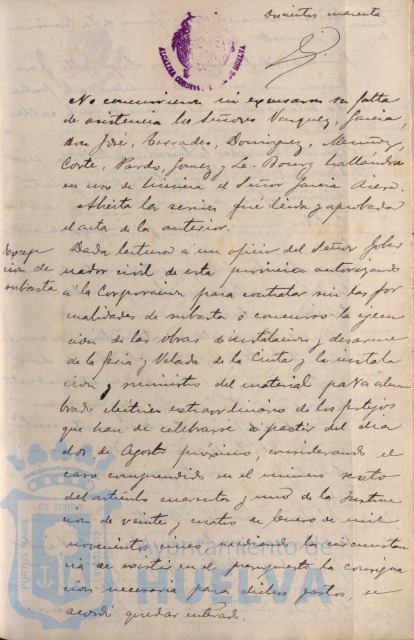 Doscientos cuarenta
ALCALDIA CONSTITUCIONAL DE HUELVA
No concurrieron ni excusaron su falta
de asistencia los Señores Vazquez, Garcia,
Don José, Terrades, Dominguez, Muñoz,
Corte, Pardo, Jonez y Le-Bourg hallandose
en uso de licencia el Señor Garcia
Abierta la sesion fué leida y aprobada
el acta de la anterior.
Excep
cion de
subasta
Dada lectura á un oficio del Señor Gober
nador civil de esta provincia autorizando
á la Corporacion para contratar sin las for
malidades de subasta ó concurso la ejecu
cion de las obras de instalacion y desarme
de la feria y Velada de la Cinta y la instala
cion y suministro del material para alum
brado eléctrico extraordinario de los festejos
que han de celebrarse á partir del dia
dos de Agosto próximo, considerando el
caso comprendido en el número sexto
del artículo cuarenta y uno de la Instruc
cion de veinte y cuatro de Enero de mil
novecientos cinco, mediando la circunstan
cia de existir en el presupuesto la consigna
cion necesaria para dichos gastos, se
acordó quedar enterado.
ET TERRÆ
PORTUS MARIS
Ayuntamiento de
HUELVA